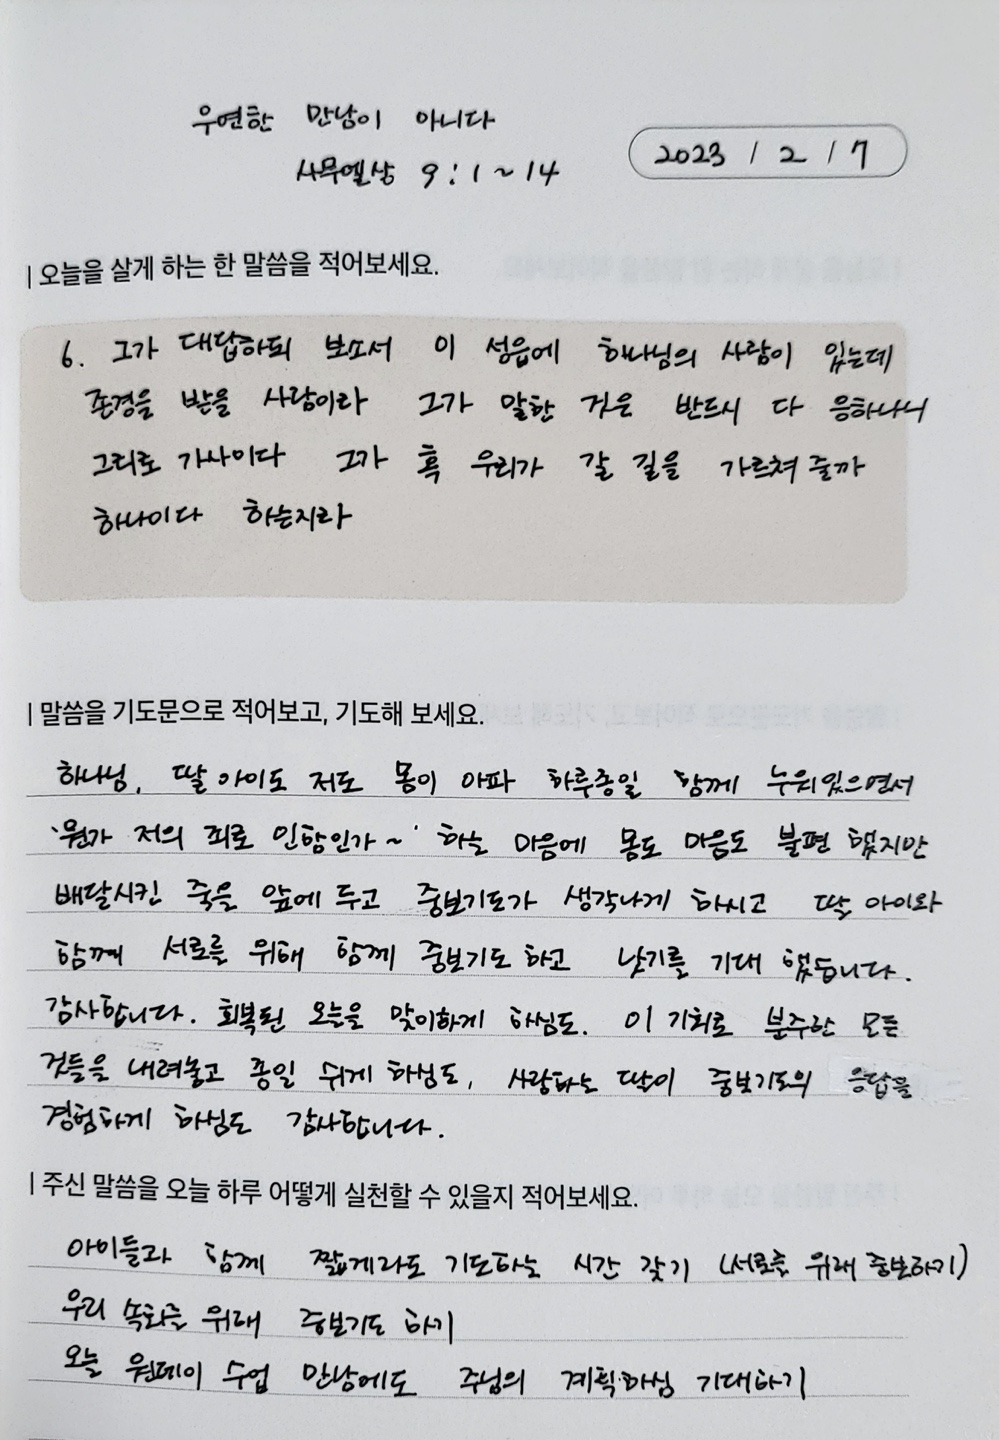 우연한 만남이 아니다
사무엘상 9:1~14
2023 / 2 / 7
| 오늘을 살게 하는 한 말씀을 적어보세요.
6. 그가 대답하되 보소서 이 성읍에 하나님의 사람이 있는데
존경을 받을 사람이라 그가 말한 것은 반드시 다 응하나니
그리로 가사이다 그가 혹 우리가 갈 길을 가르쳐 줄까
하나이다 하는지라
| 말씀을 기도문으로 적어보고, 기도해 보세요.
하나님, 딸 아이도 저도 몸이 아파 하루종일 함께 누워있으면서
'뭔가 저의 죄로 인함인가~' 하는 마음에 몸도 마음도 불편 했지만
배달시킨 죽을 앞에 두고 중보기도가 생각나게 하시고 딸 아이와
함께 서로를 위해 함께 중보기도 하고 낫기를 기대 했습니다.
감사합니다. 회복된 오늘을 맞이하게 하심도. 이 기회로 분주한 모든
것들을 내려놓고 종일 쉬게 하심도, 사랑하는 딸이 중보기도의 응답을
경험하게 하심도 감사합니다.
| 주신 말씀을 오늘 하루 어떻게 실천할 수 있을지 적어보세요.
아이들과 함께 짧게라도 기도하는 시간 갖기 (서로를 위해 중보하기)
우리 속회를 위해 중보기도 하기
오늘 원데이 수업 만남에도 주님의 계획하심 기대하기